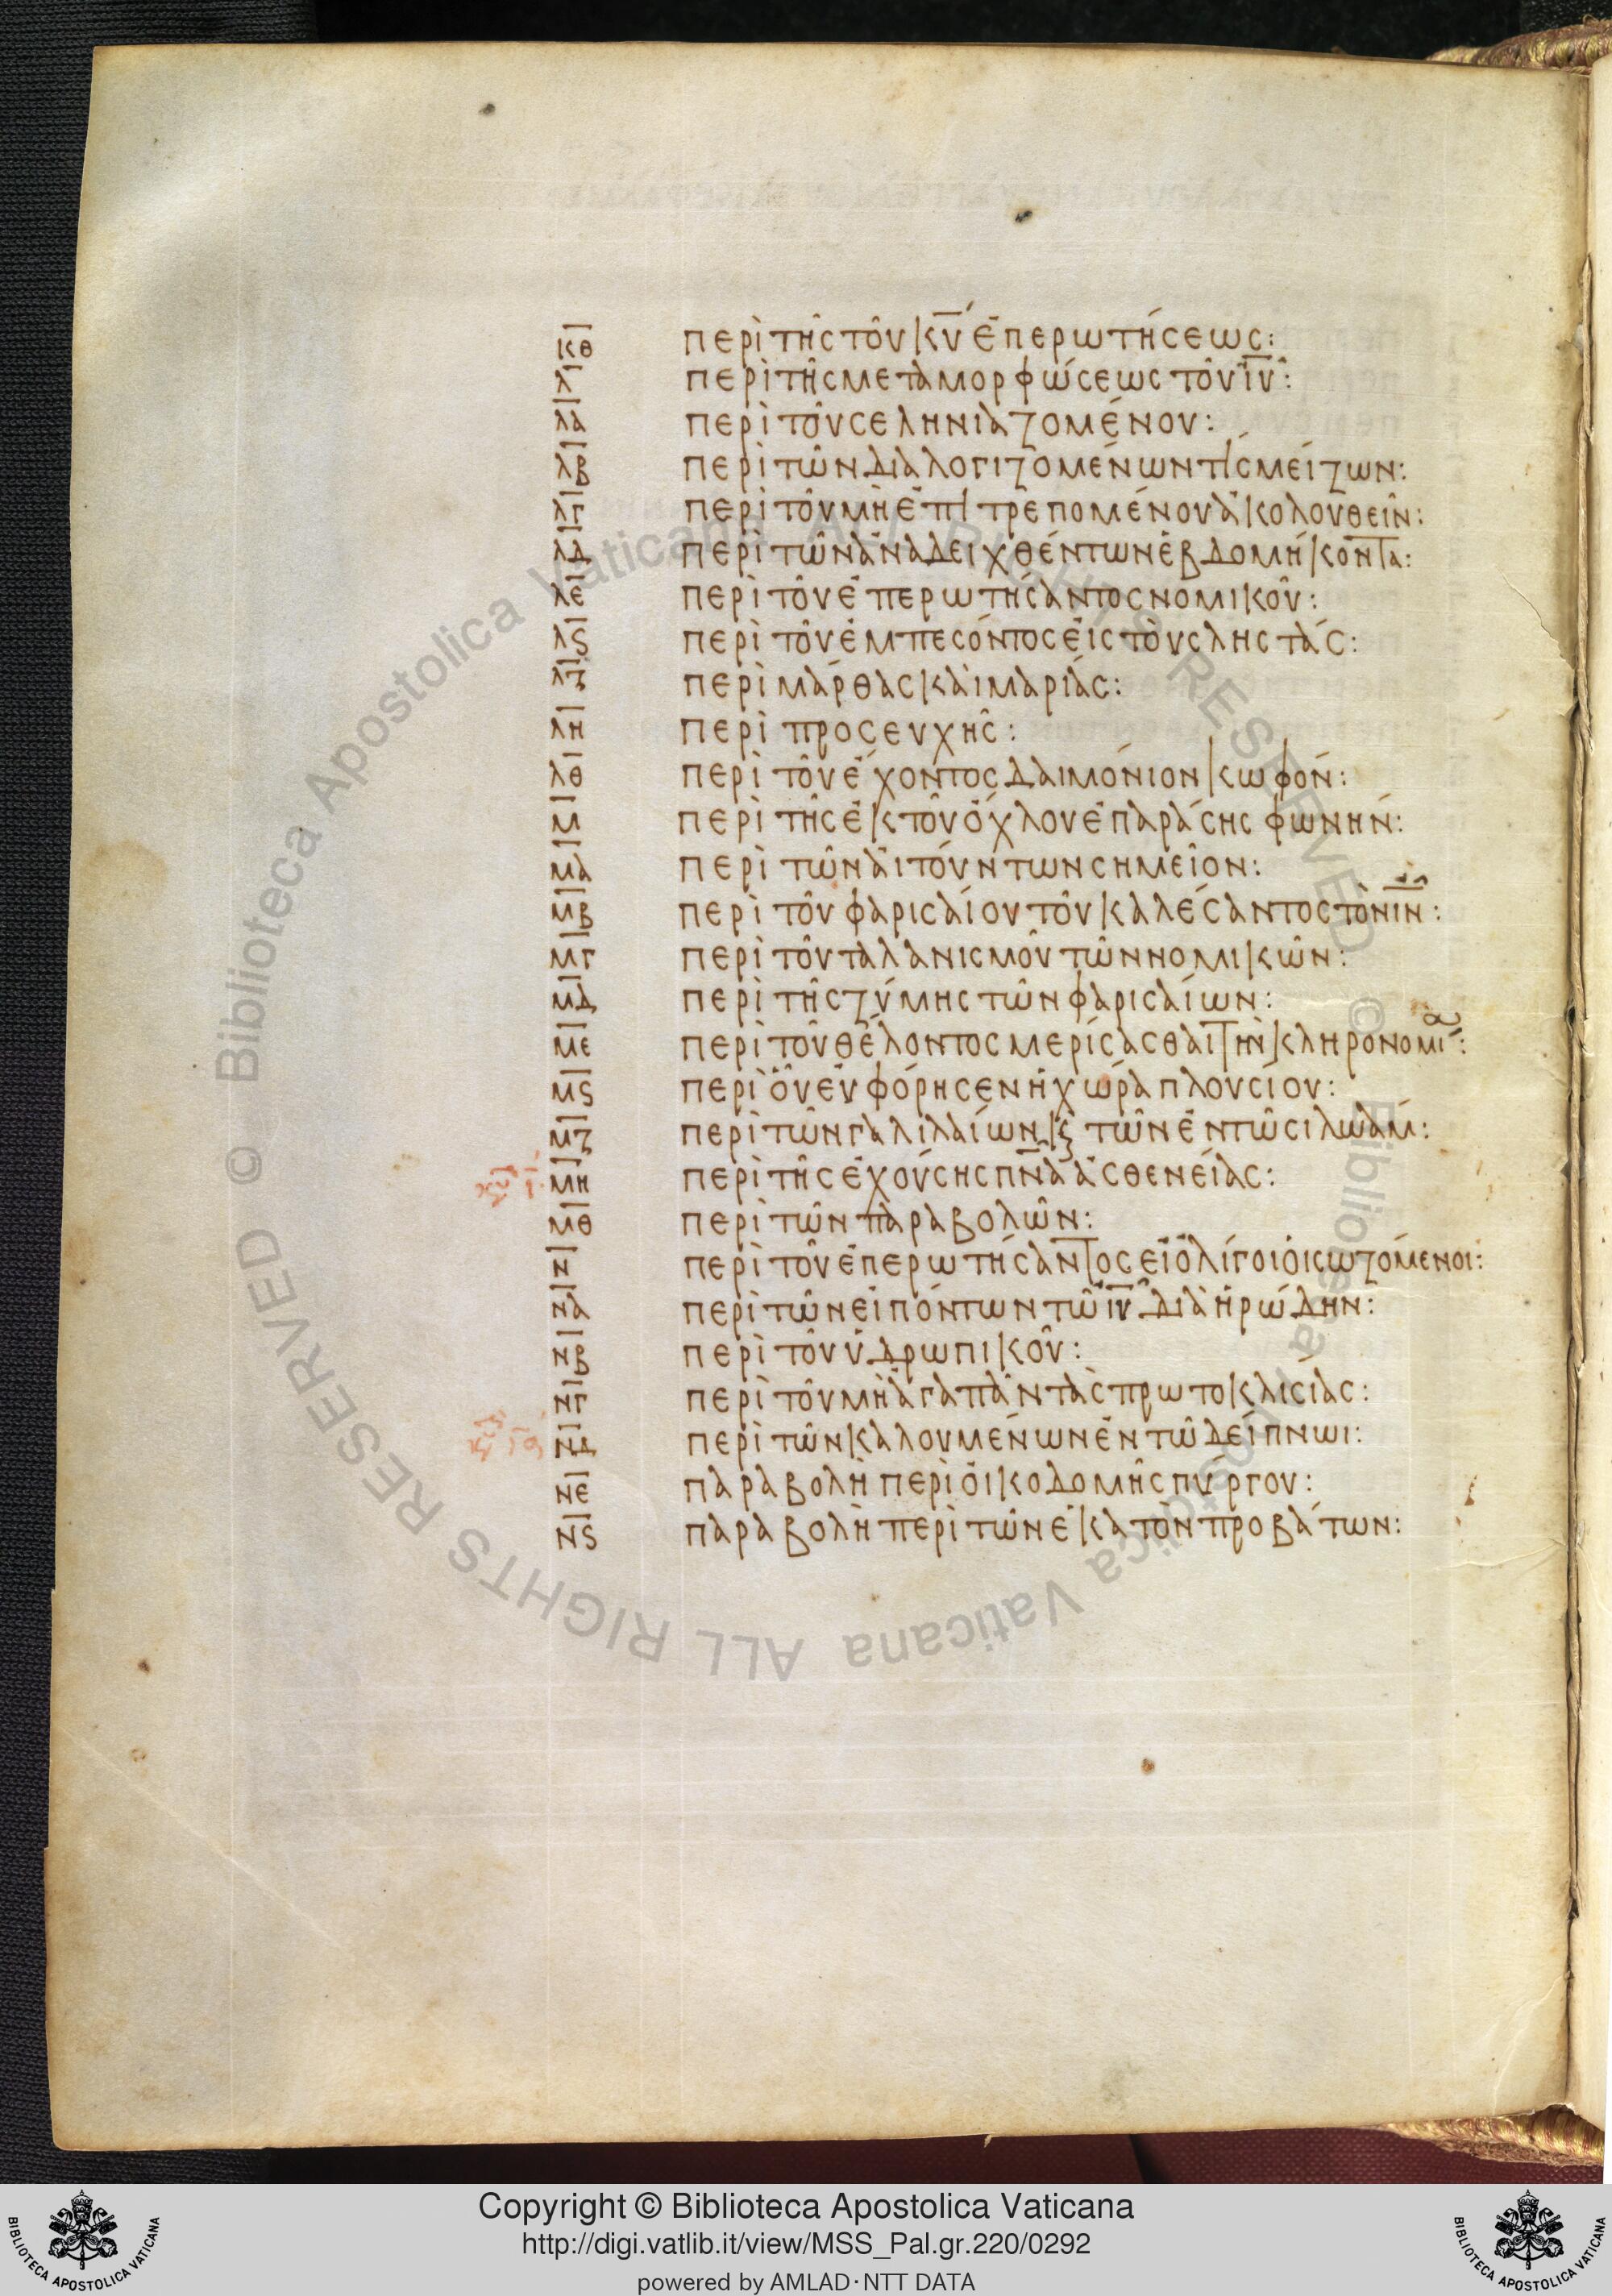 κθ περὶ τῆς τοῦ κ̅υ̅ ἐπερωτήσεως:
λ περὶ τῆς μεταμορφώσεως τοῦ ι̅υ̅:
λα περὶ τοῦ σεληνιαζομένου:
λβ περὶ τῶν διαλογιζομένων τίς μείζων:
λγ περὶ τοῦ μὴ ἐπιτρεπομένου ἀκολουθεῖν:
λδ περὶ τῶν ἀναδειχθέντων ἑβδομήκοντα:
λε περὶ τοῦ ἐπερωτήσαντος νομικοῦ:
λϛ περὶ τοῦ ἐμπεσόντος εἰς τοὺς ληστάς:
λζ περὶ μάρθας καὶ μαρίας:
λη περὶ προσευχῆς:
λθ περὶ τοῦ ἔχοντος δαιμόνιον κωφόν:
μ περὶ τῆς ἐκ τοῦ ὄχλου ἐπαράσης φωνήν:
μα περὶ τῶν αἰτούντων σημεῖον:
μβ περὶ τοῦ φαρισαίου τοῦ καλέσαντος τὸν ι̅ν̅:
μγ περὶ τοῦ ταλανισμοῦ τῶν νομικῶν:
μδ περὶ τῆς ζύμης τῶν φαρισαίων:
με περὶ τοῦ θέλοντος μερίσασθαι τὴν κληρονομί:
μϛ περὶ οὗ ἐυφόρησεν ἡ χώρα πλουσίου:
μζ περὶ τῶν γαλιλαίων κ̀ τῶν ἐν τῶ σιλωάμ:
μη περὶ τῆς ἐχούσης π̅ν̅α̅ ἀσθενείας:
μθ περὶ τῶν παραβολῶν:
ν περὶ τοῦ ἐπερωτήσαντος εἰ ὀλίγοι οἱ σωζόμενοι:
να περὶ τῶν εἰπόντων τῶ ι̅υ̅ διὰ ἡρώδην:
νβ περὶ τοῦ ὑδρωπικοῦ:
νγ περὶ τοῦ μὴ ἀγαπᾶν τὰς πρωτοκλισίας:
νδ περὶ τῶν καλουμένων ἐν τῶ δείπνωι:
νε παραβολὴ περὶ οἰκοδομῆς πύργου:
νϛ παραβολὴ περὶ τῶν ἑκατὸν προβάτων:
© Biblioteca Apostolica Vaticana ALL RIGHTS RESERVED © Biblioteca Apostolica Vaticana ALL RIGHTS RESERVED
Copyright © Biblioteca Apostolica Vaticana
http://digi.vatlib.it/view/MSS_Pal.gr.220/0292
powered by AMLAD·NTT DATA
BIBLIOTECA APOSTOLICA VATICANA
BIBLIOTECA APOSTOLICA VATICANA